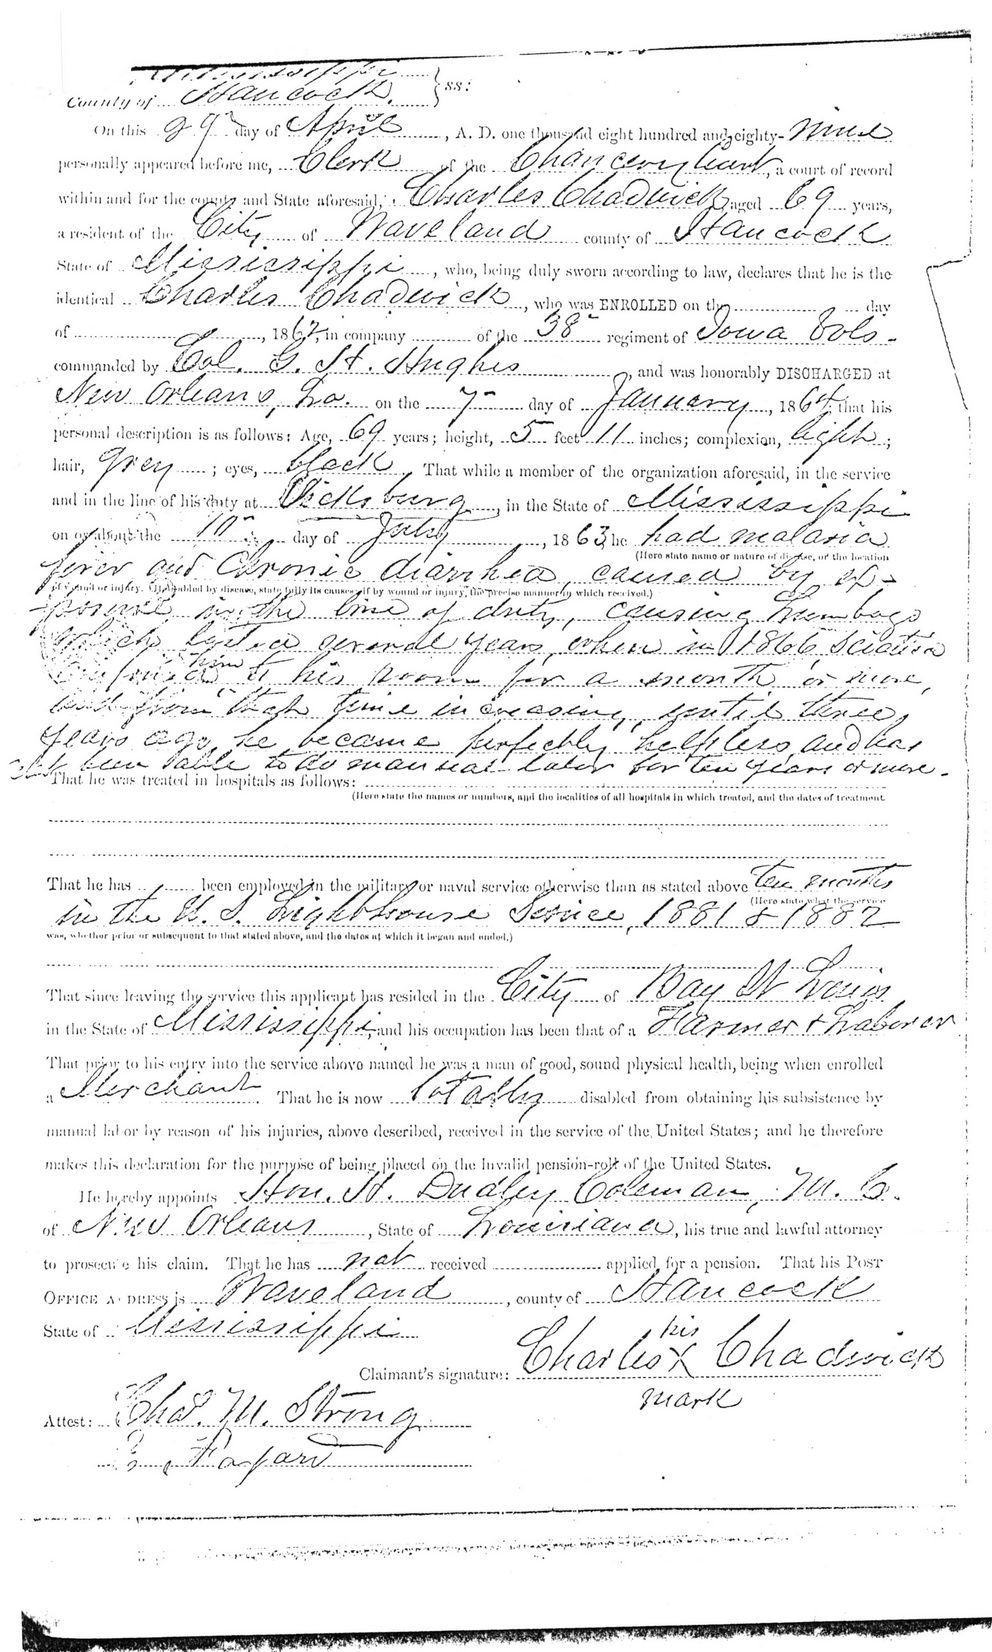 Mississippi
County of Hancock. } ss:
On this 29" day of April, A. D. one thousand eight hundred and eighty-nine
personally appeared before me, Clerk of the Chancery Court, a court of record
within and for the county and State aforesaid, Charles Chadwick aged 69 years,
a resident of the City of Waveland county of Hancock
State of Mississippi, who, being duly sworn according to law, declares that he is the
identical Charles Chadwick, who was ENROLLED on the day
of , 1862, in company of the 38" regiment of Iowa Vols-
commanded by Col. G. H. Hughes, and was honorably DISCHARGED at
New Orleans, La. on the 7" day of January, 1864, that his
personal description is as follows: Age, 69 years; height, 5 feet 11 inches; complexion, light;
hair, grey; eyes, black. That while a member of the organization aforesaid, in the service
and in the line of his duty at Vicksburg, in the State of Mississippi
on or about the 10" day of July, 1863, he had malaria
(Here state name or nature of disease, or the location
fever and Chronic diarrhea, caused by ex-
of wound or injury. If disabled by disease, state fully its causes; if by wound or injury, the precise manner in which received.)
-posure in the line of duty, causing Lumbago
which lasted several years, when in 1866, sciatica
confined him to his room for a month or more,
and from that time increasing, until three
years ago, he became perfectly helpless, and has
not been able to do manual labor for ten years or more.
That he was treated in hospitals as follows:
(Here state the names or numbers, and the localities of all hospitals in which treated, and the dates of treatment.
That he has been employed in the military or naval service otherwise than as stated above ten months
(Here state what the service
in the U. S. Lighthouse Service, 1881 & 1882
was, whether prior or subsequent to that stated above, and the dates at which it began and ended.)
That since leaving the service this applicant has resided in the City of Bay St Louis
in the State of Mississippi, and his occupation has been that of a Farmer & Laborer
That prior to his entry into the service above named he was a man of good, sound physical health, being when enrolled
a Merchant. That he is now totally disabled from obtaining his subsistence by
manual labor by reason of his injuries, above described, received in the service of the United States; and he therefore
makes this declaration for the purpose of being placed on the invalid pension-roll of the United States.
He hereby appoints Hon. H. Dudley Coleman, M. C.
of New Orleans, State of Louisiana, his true and lawful attorney
to prosecute his claim. That he has not received applied for a pension. That his POST
OFFICE ADDRESS is Waveland, county of Hancock
State of Mississippi
his
Claimant's signature: Charles X Chadwick
mark
Attest: Chas. M. Strong
Fayard